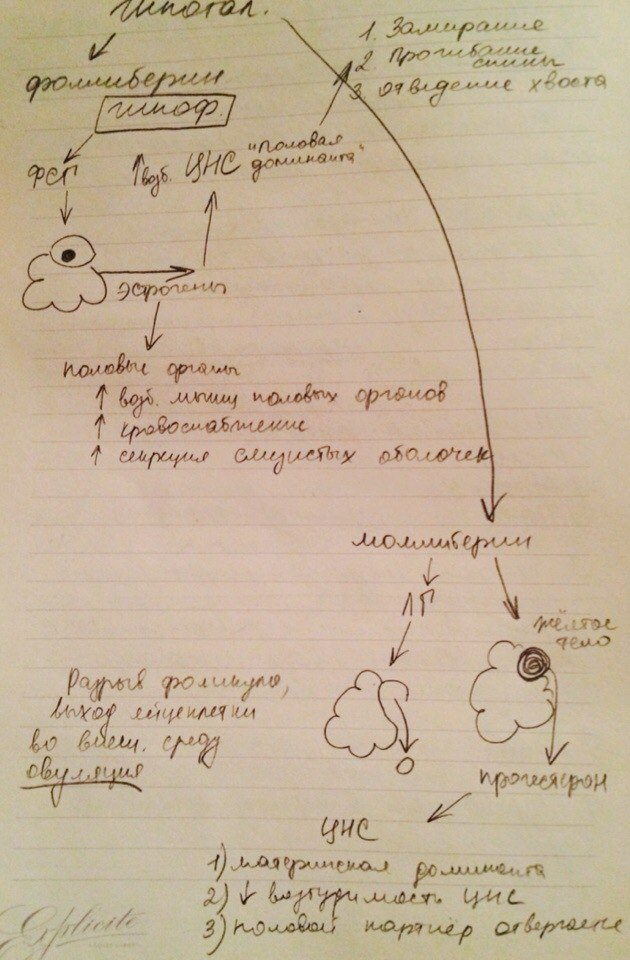 Гипотал.
1. Замирание
2 Прогибание
спины
3. отведение хвоста
фоллиберин
гипоф.
ФСГ
↑ возб. ЦНС "половая
доминанта"
эстрогены
половые органы
↑ возб. мышц половых органов
↑ кровоснабжение
↑ секреция слизистых оболочек
люлиберин
ЛГ
жёлтое
тело
Разрыв фоликула,
выход яйцеклетки
во внеш. среду
овуляция
прогестерон
ЦНС
1) материнская доминанта
2) ↓ возбудимость ЦНС
3) половой партнёр отвергается